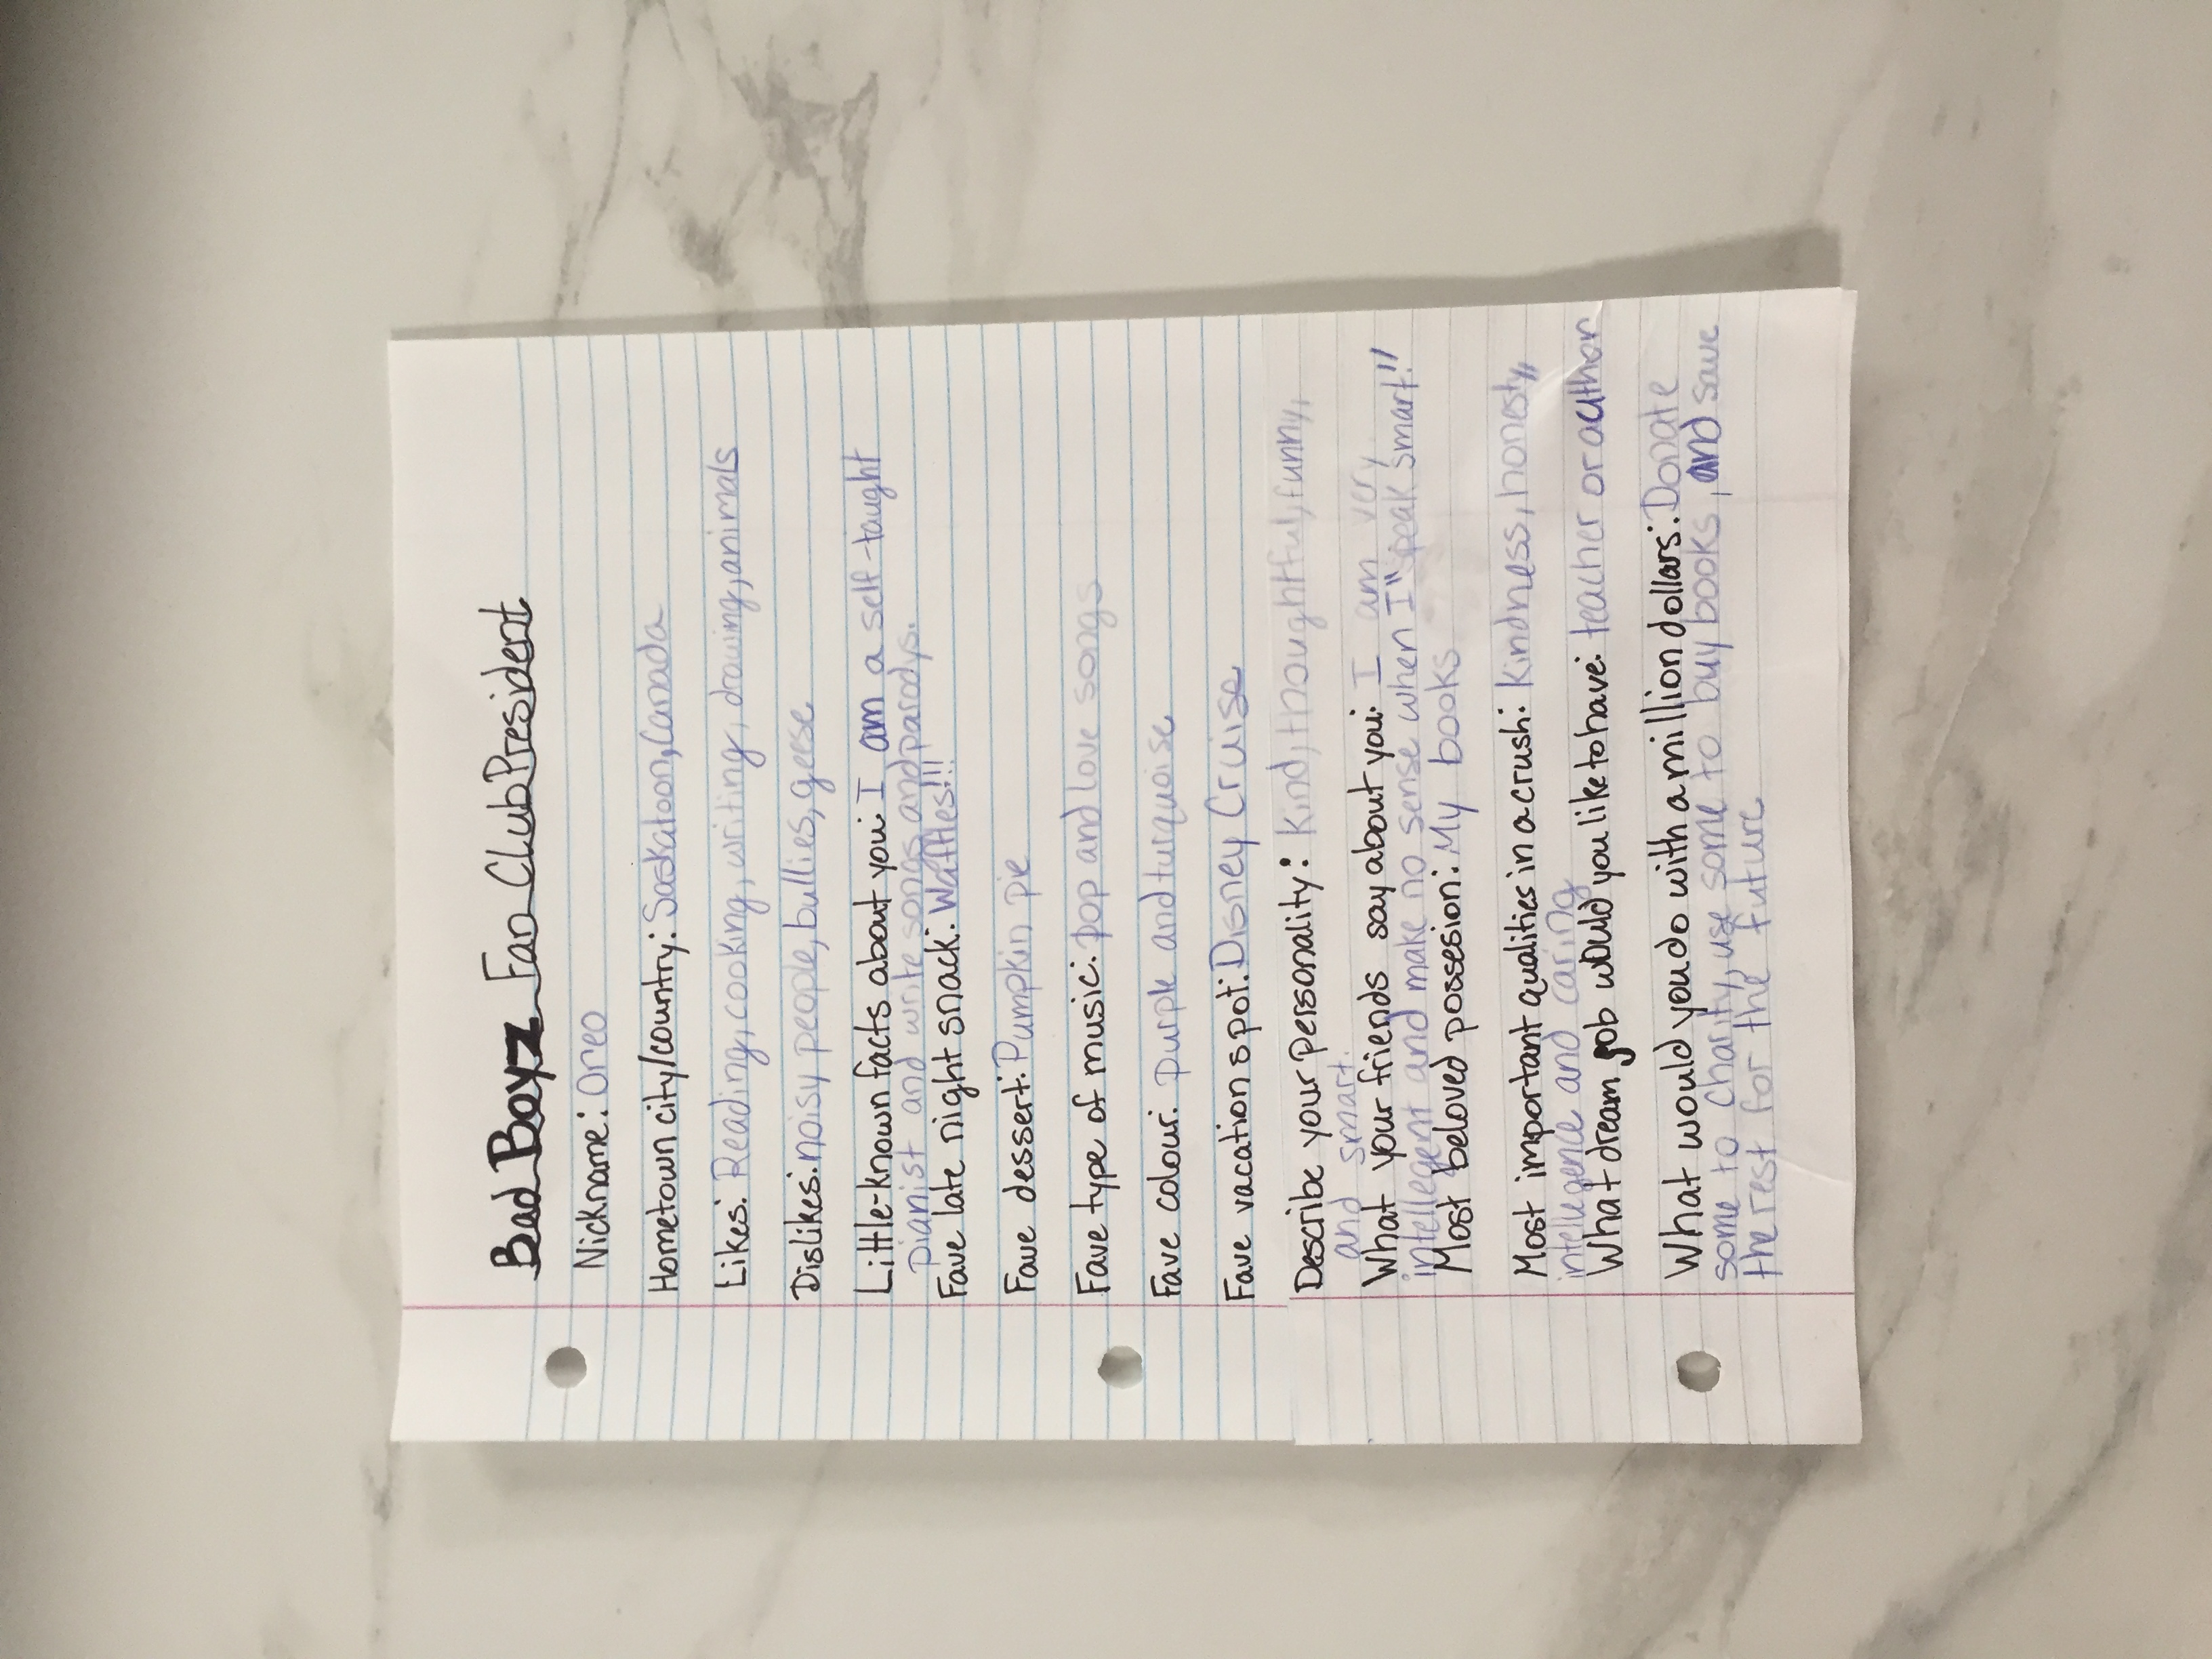 Bad Boyz Fan Club President
Nickname: Oreo
Hometown city/country: Saskatoon, Canada
Likes: Reading, cooking, writing, drawing, animals
Dislikes: noisy people, bullies, geese
Little-known facts about you: I am a self-taught
pianist and write songs and parodys.
Fave late night snack: Waffles!!!
Fave dessert: Pumpkin pie
Fave type of music: pop and love songs
Fave colour: purple and turquoise
Fave vacation spot: Disney Cruise
Describe your personality: kind, thoughtful, funny,
and smart.
What your friends say about you: I am very
intellegent and make no sense when I "speak smart!"
Most beloved possesion: My books
Most important qualities in a crush: kindness, honesty,
intellegence and caring
What dream job would you like to have: teacher or author
What would you do with a million dollars: Donate
some to charity, use some to buy books, and save
the rest for the future